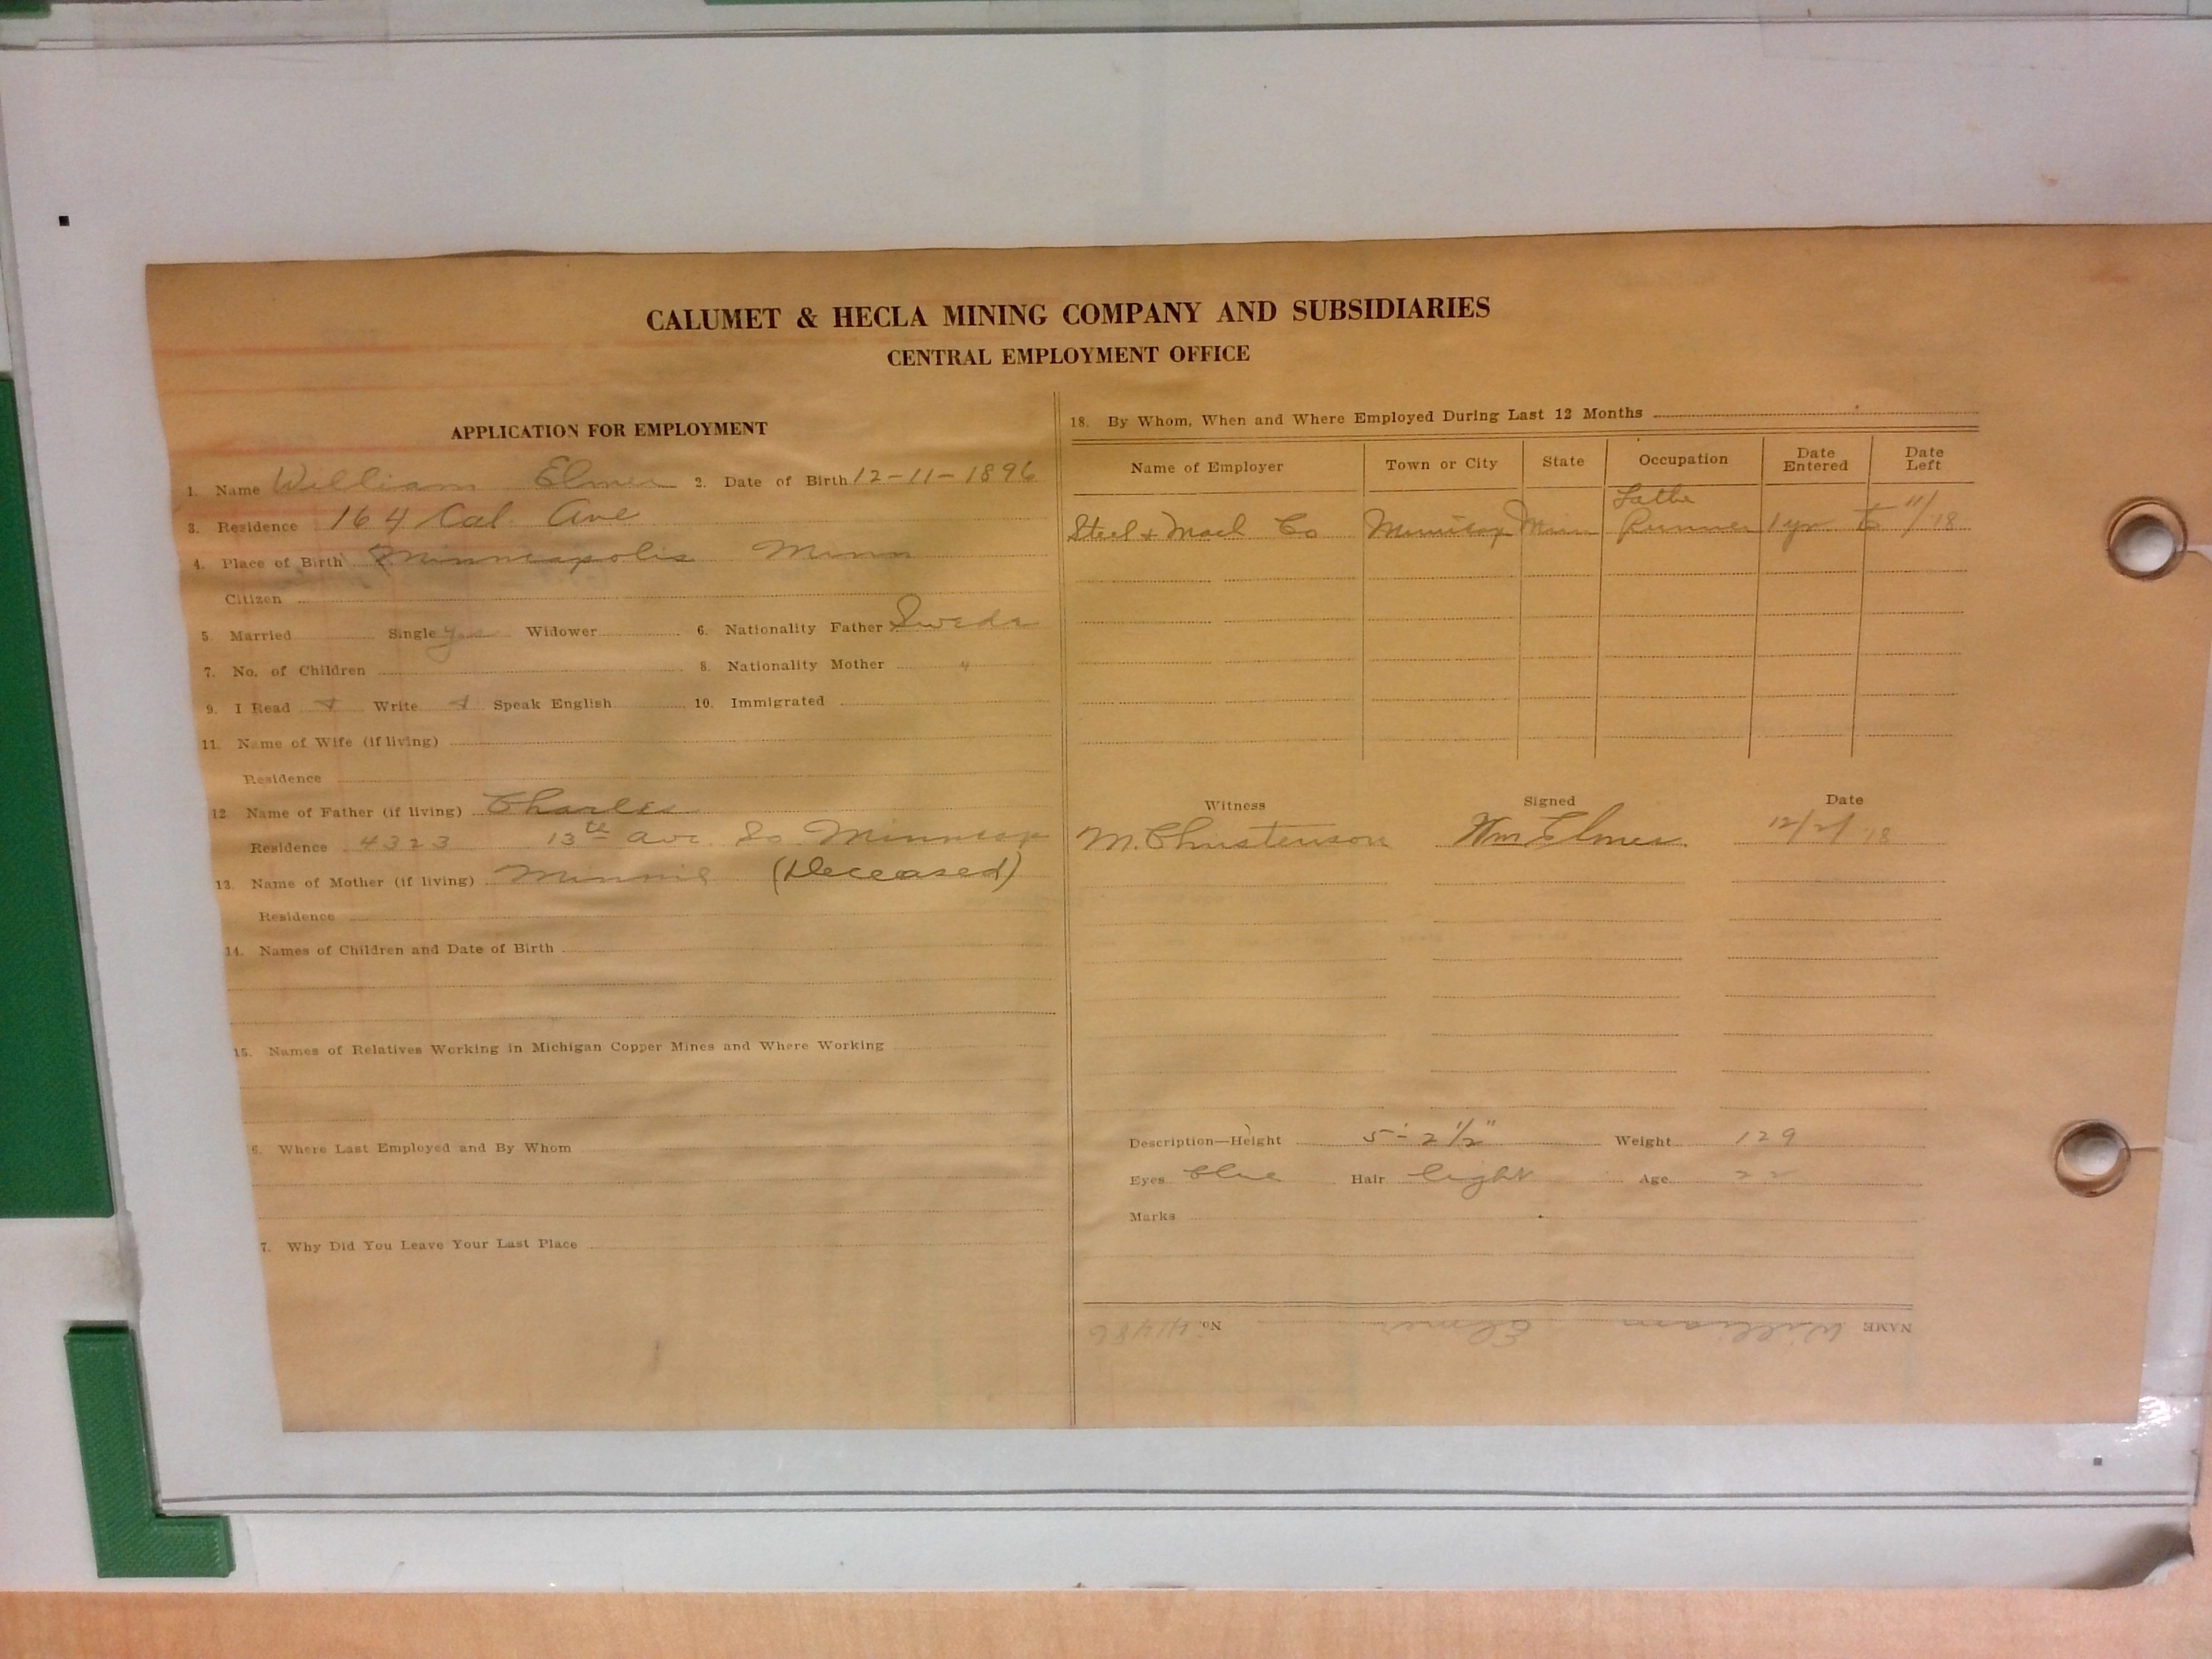 CALUMET & HECLA MINING COMPANY AND SUBSIDIARIES
CENTRAL EMPLOYMENT OFFICE
APPLICATION FOR EMPLOYMENT
1. Name William Elmer 2. Date of Birth 12-11-1896
3. Residence 164 Cal. Ave
4. Place of Birth Minneapolis Minn
Citizen
5. Married Single Yes Widower 6. Nationality Father Swede
7. No. of Children 8. Nationality Mother "
9. I Read Write Speak English 10. Immigrated
11. Name of Wife (if living)
Residence
12 Name of Father (if living) Charles
Residence 4323 13th Ave. So. Minneap
13. Name of Mother (if living) Minnie (Deceased)
Residence
14. Names of Children and Date of Birth
15. Names of Relatives Working in Michigan Copper Mines and Where Working
6. Where Last Employed and By Whom
7. Why Did You Leave Your Last Place
18. By Whom, When and Where Employed During Last 12 Months
Name of Employer Town or City State Occupation Date Entered Date Left
Steel & Mach Co Minn Lathe Runner 1 yr to 11/18
Witness Signed Date
M. Christenson Wm Elmer. 12/2/18
Description—Height 5'-2 1/2" Weight 129
Eyes blue Hair light Age 22
Marks
NAME William Elmer No. 41486